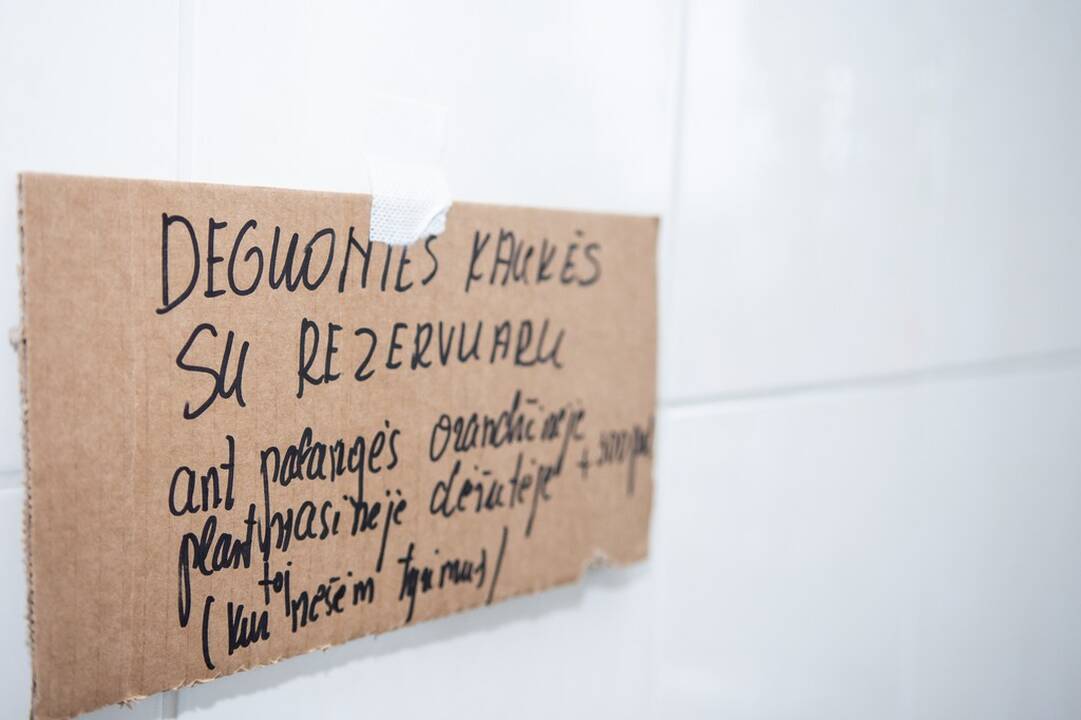 DEGUONIES KAUKĖS
SU REZERVUARU
ant palangės oranžinėje
plastmasinėje dėžutėje +
(kur nešėm tyrimus)